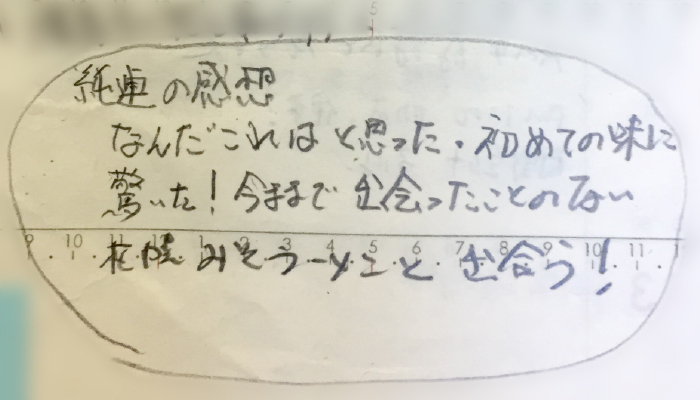 純連の感想
なんだこれはと思った。初めての味に
驚いた!今まで出会ったことのない
札幌みそラーメンと出会う!
5
9 10 11 1 2 3 4 5 6 7 8 9 10 11 1